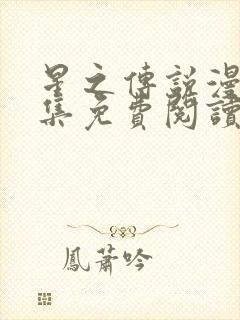 星之傳說漫
集免費閱讀
鳳蕭吟